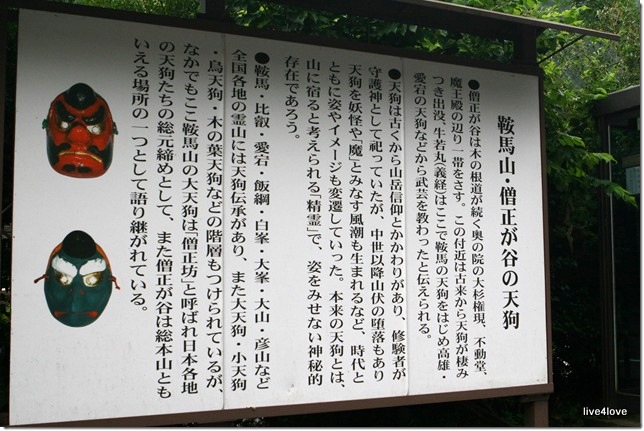 鞍馬山・僧正が谷の天狗
●僧正が谷は木の根道が続く奥の院の大杉権現、不動堂、
魔王殿の辺り一帯をさす。この付近は古来から天狗が棲み
つき出没、牛若丸(義経)はここで鞍馬の天狗をはじめ高雄・
愛宕の天狗などから武芸を教わったと伝えられる。
●天狗は古くから山岳信仰とかかわりがあり、修験者が
守護神として祀っていたが、中世以降山伏の堕落もあり
天狗を妖怪や「魔」とみなす風潮も生まれるなど、時代と
ともに姿やイメージも変遷していった。本来の天狗とは、
山に宿ると考えられる「精霊」で、姿をみせない神秘的
存在であろう。
●鞍馬・比叡・愛宕・飯綱・白峯・大峯・大山・彦山など
全国各地の霊山には天狗伝承があり、また大天狗・小天狗
・烏天狗・木の葉天狗などの階層もつけられているが、
なかでもここ鞍馬山の大天狗は「僧正坊」と呼ばれ日本各地
の天狗たちの総元締めとして、また僧正が谷は総本山とも
いえる場所の一つとして語り継がれている。
live4love